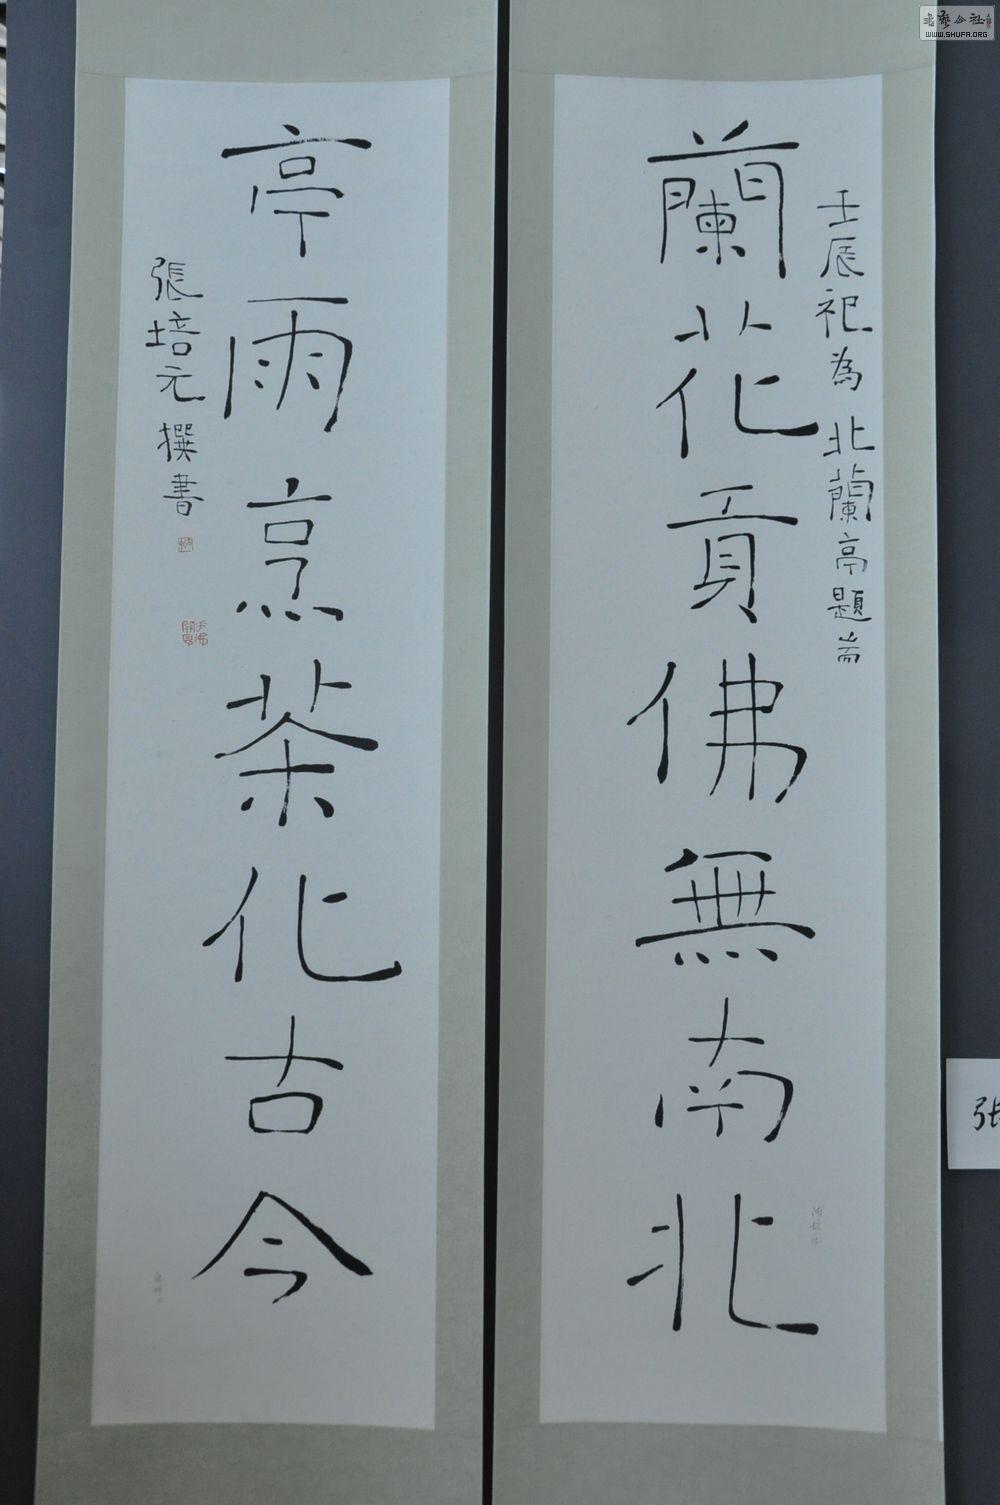 蘭花貢佛無南北
壬辰祀為北蘭亭題耑
亭雨烹茶化古今
張培元撰書
WWW.SHUFA.ORG
张